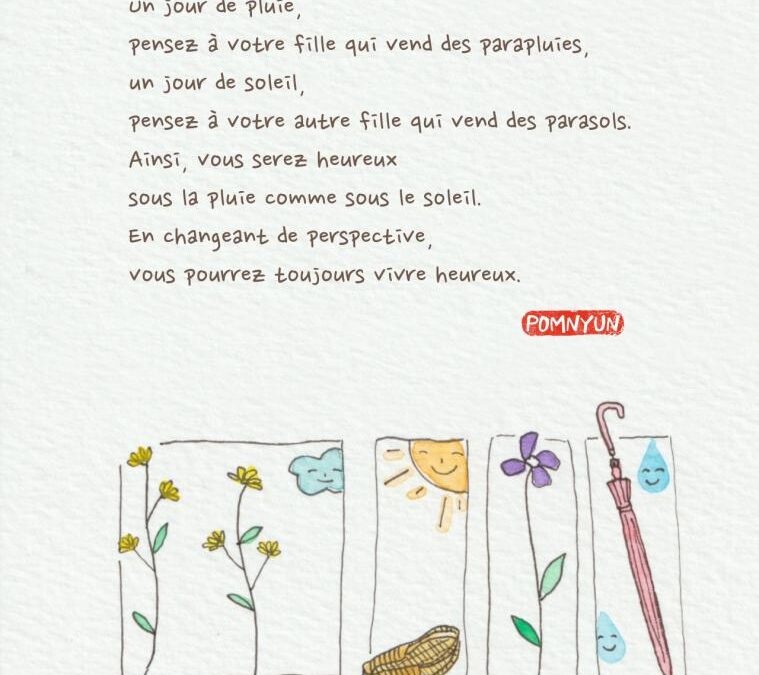 Un jour de pluie,
pensez à votre fille qui vend des parapluies,
un jour de soleil,
pensez à votre autre fille qui vend des parasols.
Ainsi, vous serez heureux
sous la pluie comme sous le soleil.
En changeant de perspective,
vous pourrez toujours vivre heureux.
POMNYUN